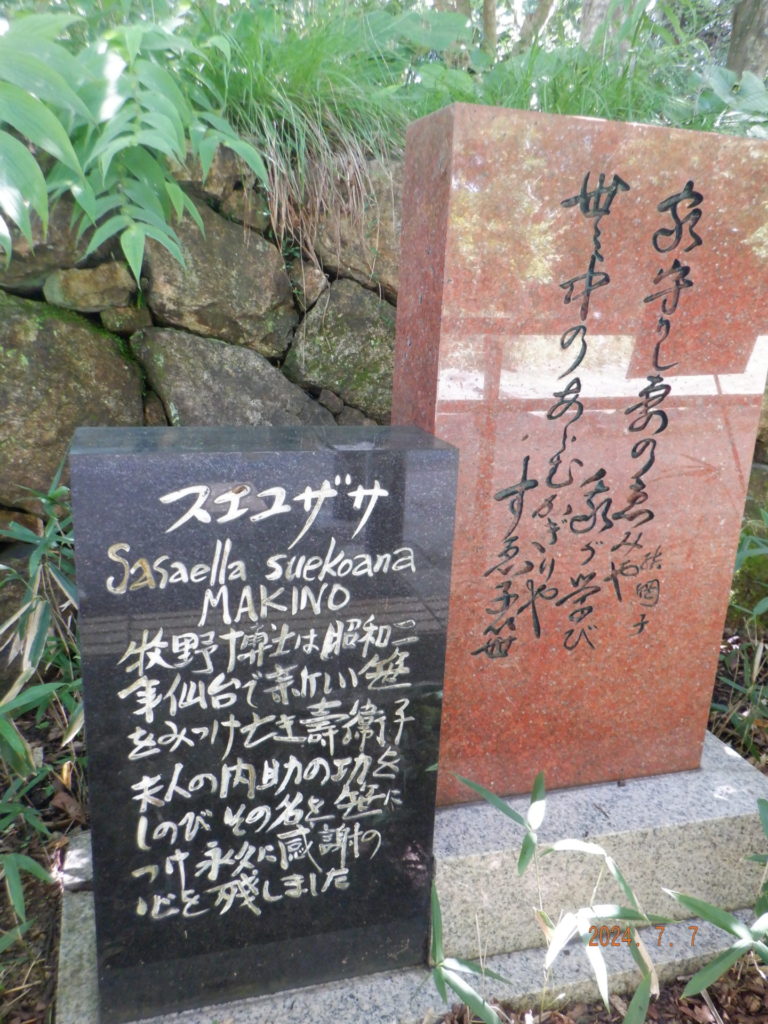 スエコザサ
Sasaella suekoana
MAKINO
牧野博士は昭和二
年仙台で新しい笹
をみつけ亡き壽衛子
夫人の内助の功を
しのびその名を笹に
つけ永久に感謝の
心を残しました
家守りし妻の恵みや
我が学び
世の中のあらむかぎりや
すゑ子笹
2024. 7. 7